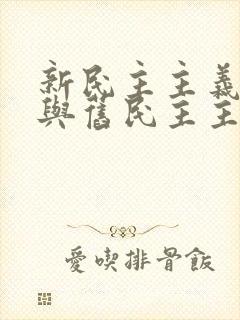 新民主主義
與舊民主主
愛喫排骨飯